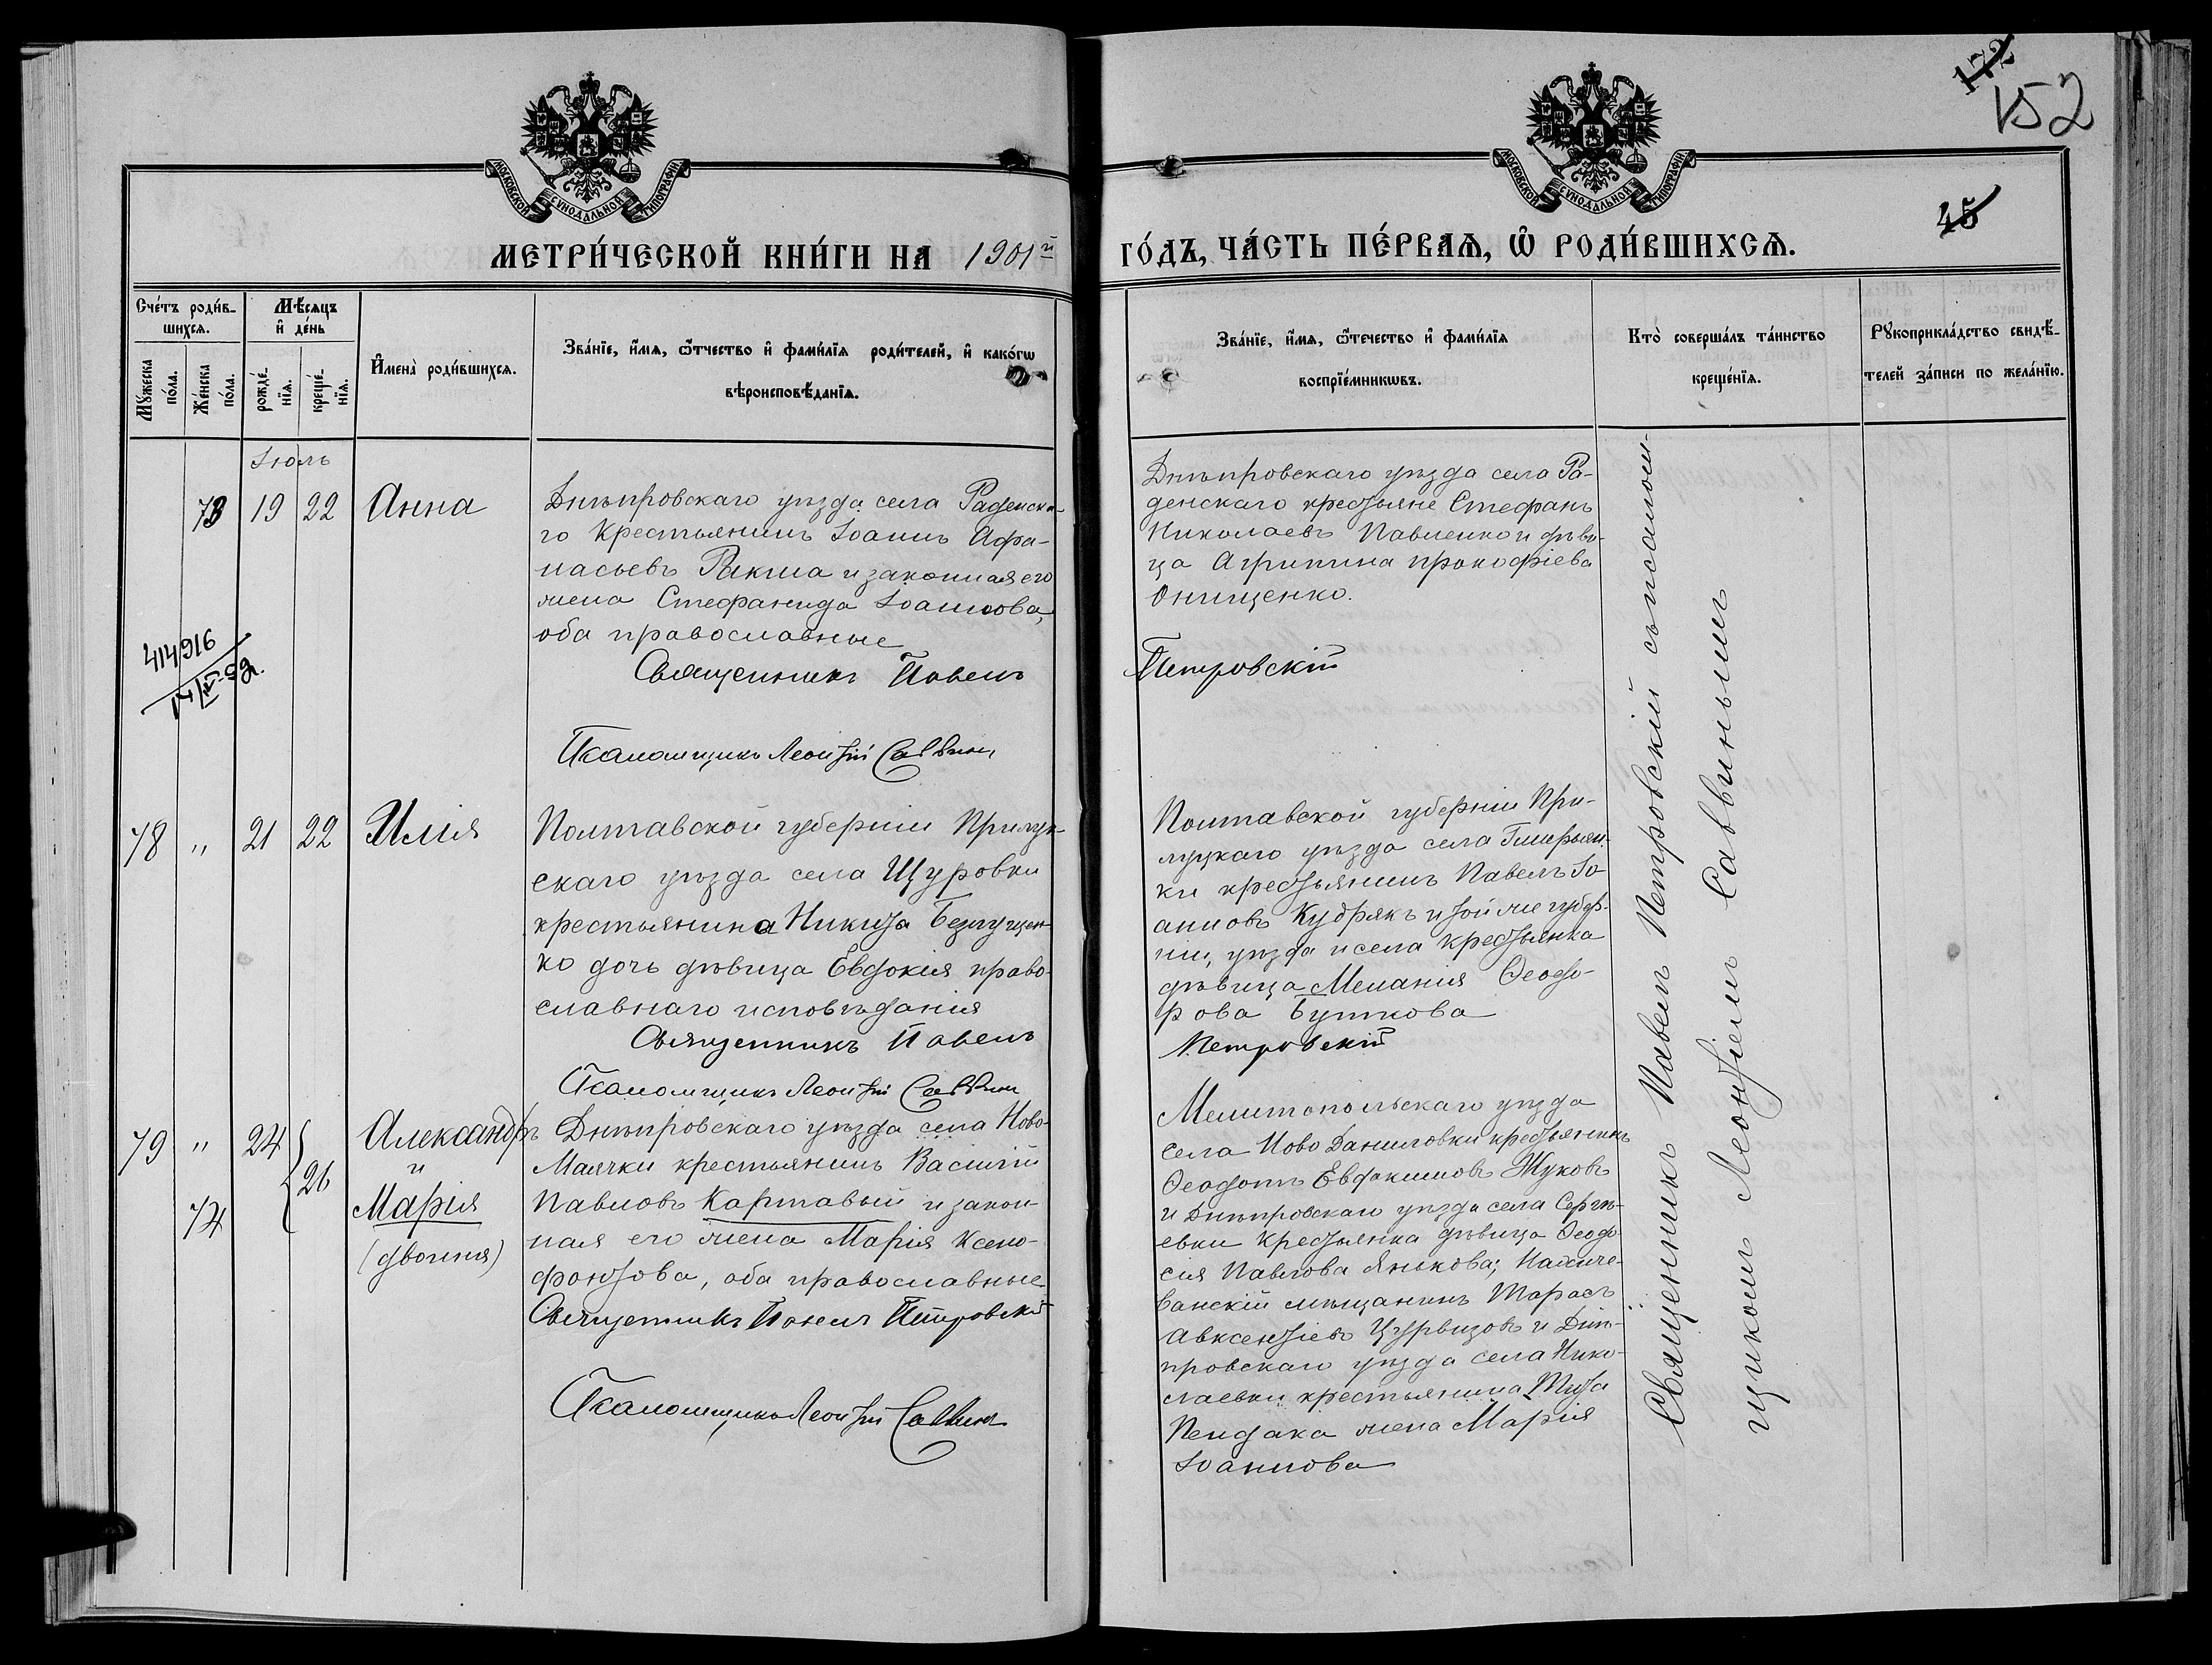 172
152
МОСКОВСКОЙ СѴНОДАЛЬНОЙ ТИПОГРАФІИ
МОСКОВСКОЙ СѴНОДАЛЬНОЙ ТИПОГРАФІИ
45
МЕТРИ́ЧЕСКОЙ КНИ́ГИ НА 1901й ГО́ДЪ, ЧА́СТЬ ПЕ́РВАѦ, Ѿ РОДИ́ВШИХСѦ.
Сче́тъ роди́в-
шихсѧ.
Мꙋ́жеска по́ла.
Же́нска по́ла.
Мѣ́сѧцъ
и҆ де́нь
рожде́-нїѧ.
креще́-нїѧ.
И҆мена̀ роди́вшихсѧ.
Зва́нїе, и҆́мѧ, ѻ҆́тчество и҆ фами́лїѧ роди́телей, и҆ како́гѡ
вѣроисповѣ́данїѧ.
Зва́нїе, и҆́мѧ, ѻ҆́течество и҆ фами́лїѧ
воспрїе́мникѡвъ.
Кто̀ соверша́лъ та́инство
креще́нїѧ.
Рꙋкоприкла́дство свидѣ́-
телей за́писи по жела́нїю.
Іюль
73 19 22 Анна
Днѣпровскаго уѣзда села Раденска-
го крестьянинъ Іоаннъ Афа-
насьевъ Ракша и законная его
жена Стефанида Іоаннова,
оба православные
Священникъ Павелъ
Псаломщикъ Леонтій Саввин
414916
Днѣпровскаго уѣзда села Ра-
денскаго крестьяне Стефанъ
Николаевъ Павленко и дѣви-
ца Агрипина Прокофіева
Онищенко.
Петровскій
78 " 21 22 Илія
Полтавской губерніи Прилук-
скаго уѣзда села Щуровки
крестьянина Никиты Безлущен-
ко дочь дѣвица Евдокія право-
славнаго исповѣданія
Священникъ Павелъ
Псаломщикъ Леонтій Саввин
Полтавской губерніи При-
луцкаго уѣзда села Гмирян-
ки крестьянинъ Павелъ Іо-
анновъ Кудрякъ и той же губер-
ніи, уѣзда и села крестьянка
дѣвица Меланія Ѳеодо-
рова Буткова
Петровскій
79 " 24 26 Александръ
и
74 Марія
(двойня)
Днѣпровскаго уѣзда села Ново-
Маячки крестьянинъ Василій
Павловъ Картавый и закон-
ная его жена Марія Ксено-
фонтова, оба православные
Священникъ Павелъ Петровскій
Псаломщикъ Леонтій Саввин
Мелитопольскаго уѣзда
села Ново Даниловки крестьянинъ
Ѳеодотъ Евдокимовъ Жуковъ
и Днѣпровскаго уѣзда села Сергѣ-
евки крестьянка дѣвица Ѳеодо-
сія Павлова Янькова; Нахиче-
ванскій мѣщанинъ Тарасъ
Авксентіевъ Цурвизовъ и Днѣ-
провскаго уѣзда села Нико-
лаевки крестьянина Тита
Пендака жена Марія
Іоаннова
Священникъ Павелъ Петровскій съ псалом-
щикомъ Леонтіемъ Саввинымъ